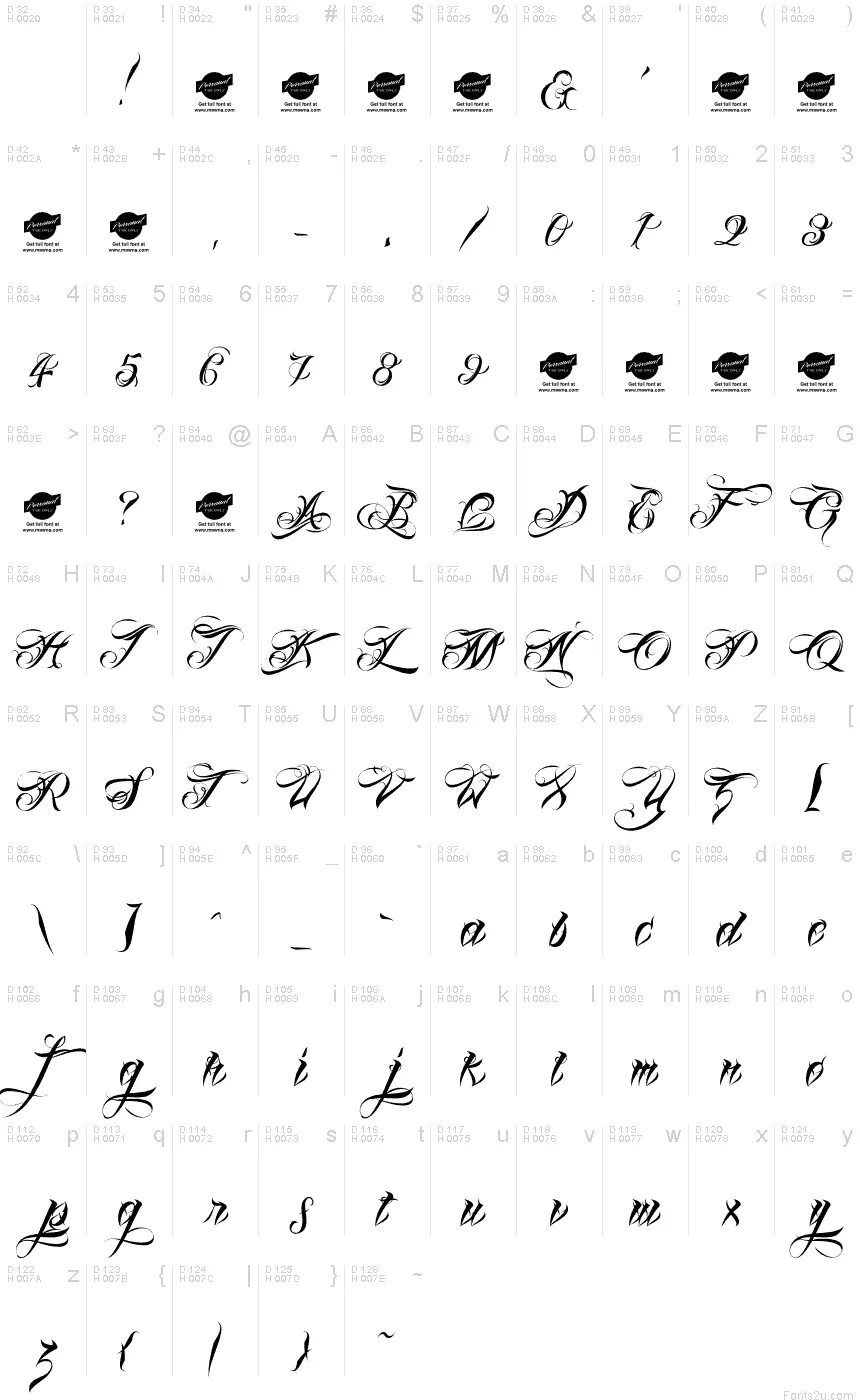 D 32 H 0020 D 33 H 0021 ! D 34 H 0022 " D 35 H 0023 # D 36 H 0024 $ D 37 H 0025 % D 38 H 0026 & D 39 H 0027 ' D 40 H 0028 ( D 41 H 0029 )
! Personal USE ONLY Get full font at www.mwwna.com Personal USE ONLY Get full font at www.mwwna.com Personal USE ONLY Get full font at www.mwwna.com Personal USE ONLY Get full font at www.mwwna.com & ' Personal USE ONLY Get full font at www.mwwna.com Personal USE ONLY Get full font at www.mwwna.com
D 42 H 002A * D 43 H 002B + D 44 H 002C , D 45 H 002D - D 46 H 002E . D 47 H 002F / D 48 H 0030 0 D 49 H 0031 1 D 50 H 0032 2 D 51 H 0033 3
Personal USE ONLY Get full font at www.mwwna.com Personal USE ONLY Get full font at www.mwwna.com , - . / 0 1 2 3
D 52 H 0034 4 D 53 H 0035 5 D 54 H 0036 6 D 55 H 0037 7 D 56 H 0038 8 D 57 H 0039 9 D 58 H 003A : D 59 H 003B ; D 60 H 003C < D 61 H 003D =
4 5 6 7 8 9 Personal USE ONLY Get full font at www.mwwna.com Personal USE ONLY Get full font at www.mwwna.com Personal USE ONLY Get full font at www.mwwna.com Personal USE ONLY Get full font at www.mwwna.com
D 62 H 003E > D 63 H 003F ? D 64 H 0040 @ D 65 H 0041 A D 66 H 0042 B D 67 H 0043 C D 68 H 0044 D D 69 H 0045 E D 70 H 0046 F D 71 H 0047 G
Personal USE ONLY Get full font at www.mwwna.com ? Personal USE ONLY Get full font at www.mwwna.com A B C D E F G
D 72 H 0048 H D 73 H 0049 I D 74 H 004A J D 75 H 004B K D 76 H 004C L D 77 H 004D M D 78 H 004E N D 79 H 004F O D 80 H 0050 P D 81 H 0051 Q
H I J K L M N O P Q
D 82 H 0052 R D 83 H 0053 S D 84 H 0054 T D 85 H 0055 U D 86 H 0056 V D 87 H 0057 W D 88 H 0058 X D 89 H 0059 Y D 90 H 005A Z D 91 H 005B [
R S T U V W X Y Z [
D 92 H 005C \ D 93 H 005D ] D 94 H 005E ^ D 95 H 005F _ D 96 H 0060 ` D 97 H 0061 a D 98 H 0062 b D 99 H 0063 c D 100 H 0064 d D 101 H 0065 e
\ ] ^ _ ` a b c d e
D 102 H 0066 f D 103 H 0067 g D 104 H 0068 h D 105 H 0069 i D 106 H 006A j D 107 H 006B k D 108 H 006C l D 109 H 006D m D 110 H 006E n D 111 H 006F o
f g h i j k l m n o
D 112 H 0070 p D 113 H 0071 q D 114 H 0072 r D 115 H 0073 s D 116 H 0074 t D 117 H 0075 u D 118 H 0076 v D 119 H 0077 w D 120 H 0078 x D 121 H 0079 y
p q r s t u v w x y
D 122 H 007A z D 123 H 007B { D 124 H 007C | D 125 H 007D } D 126 H 007E ~
z { | } ~
Fonts2u.com